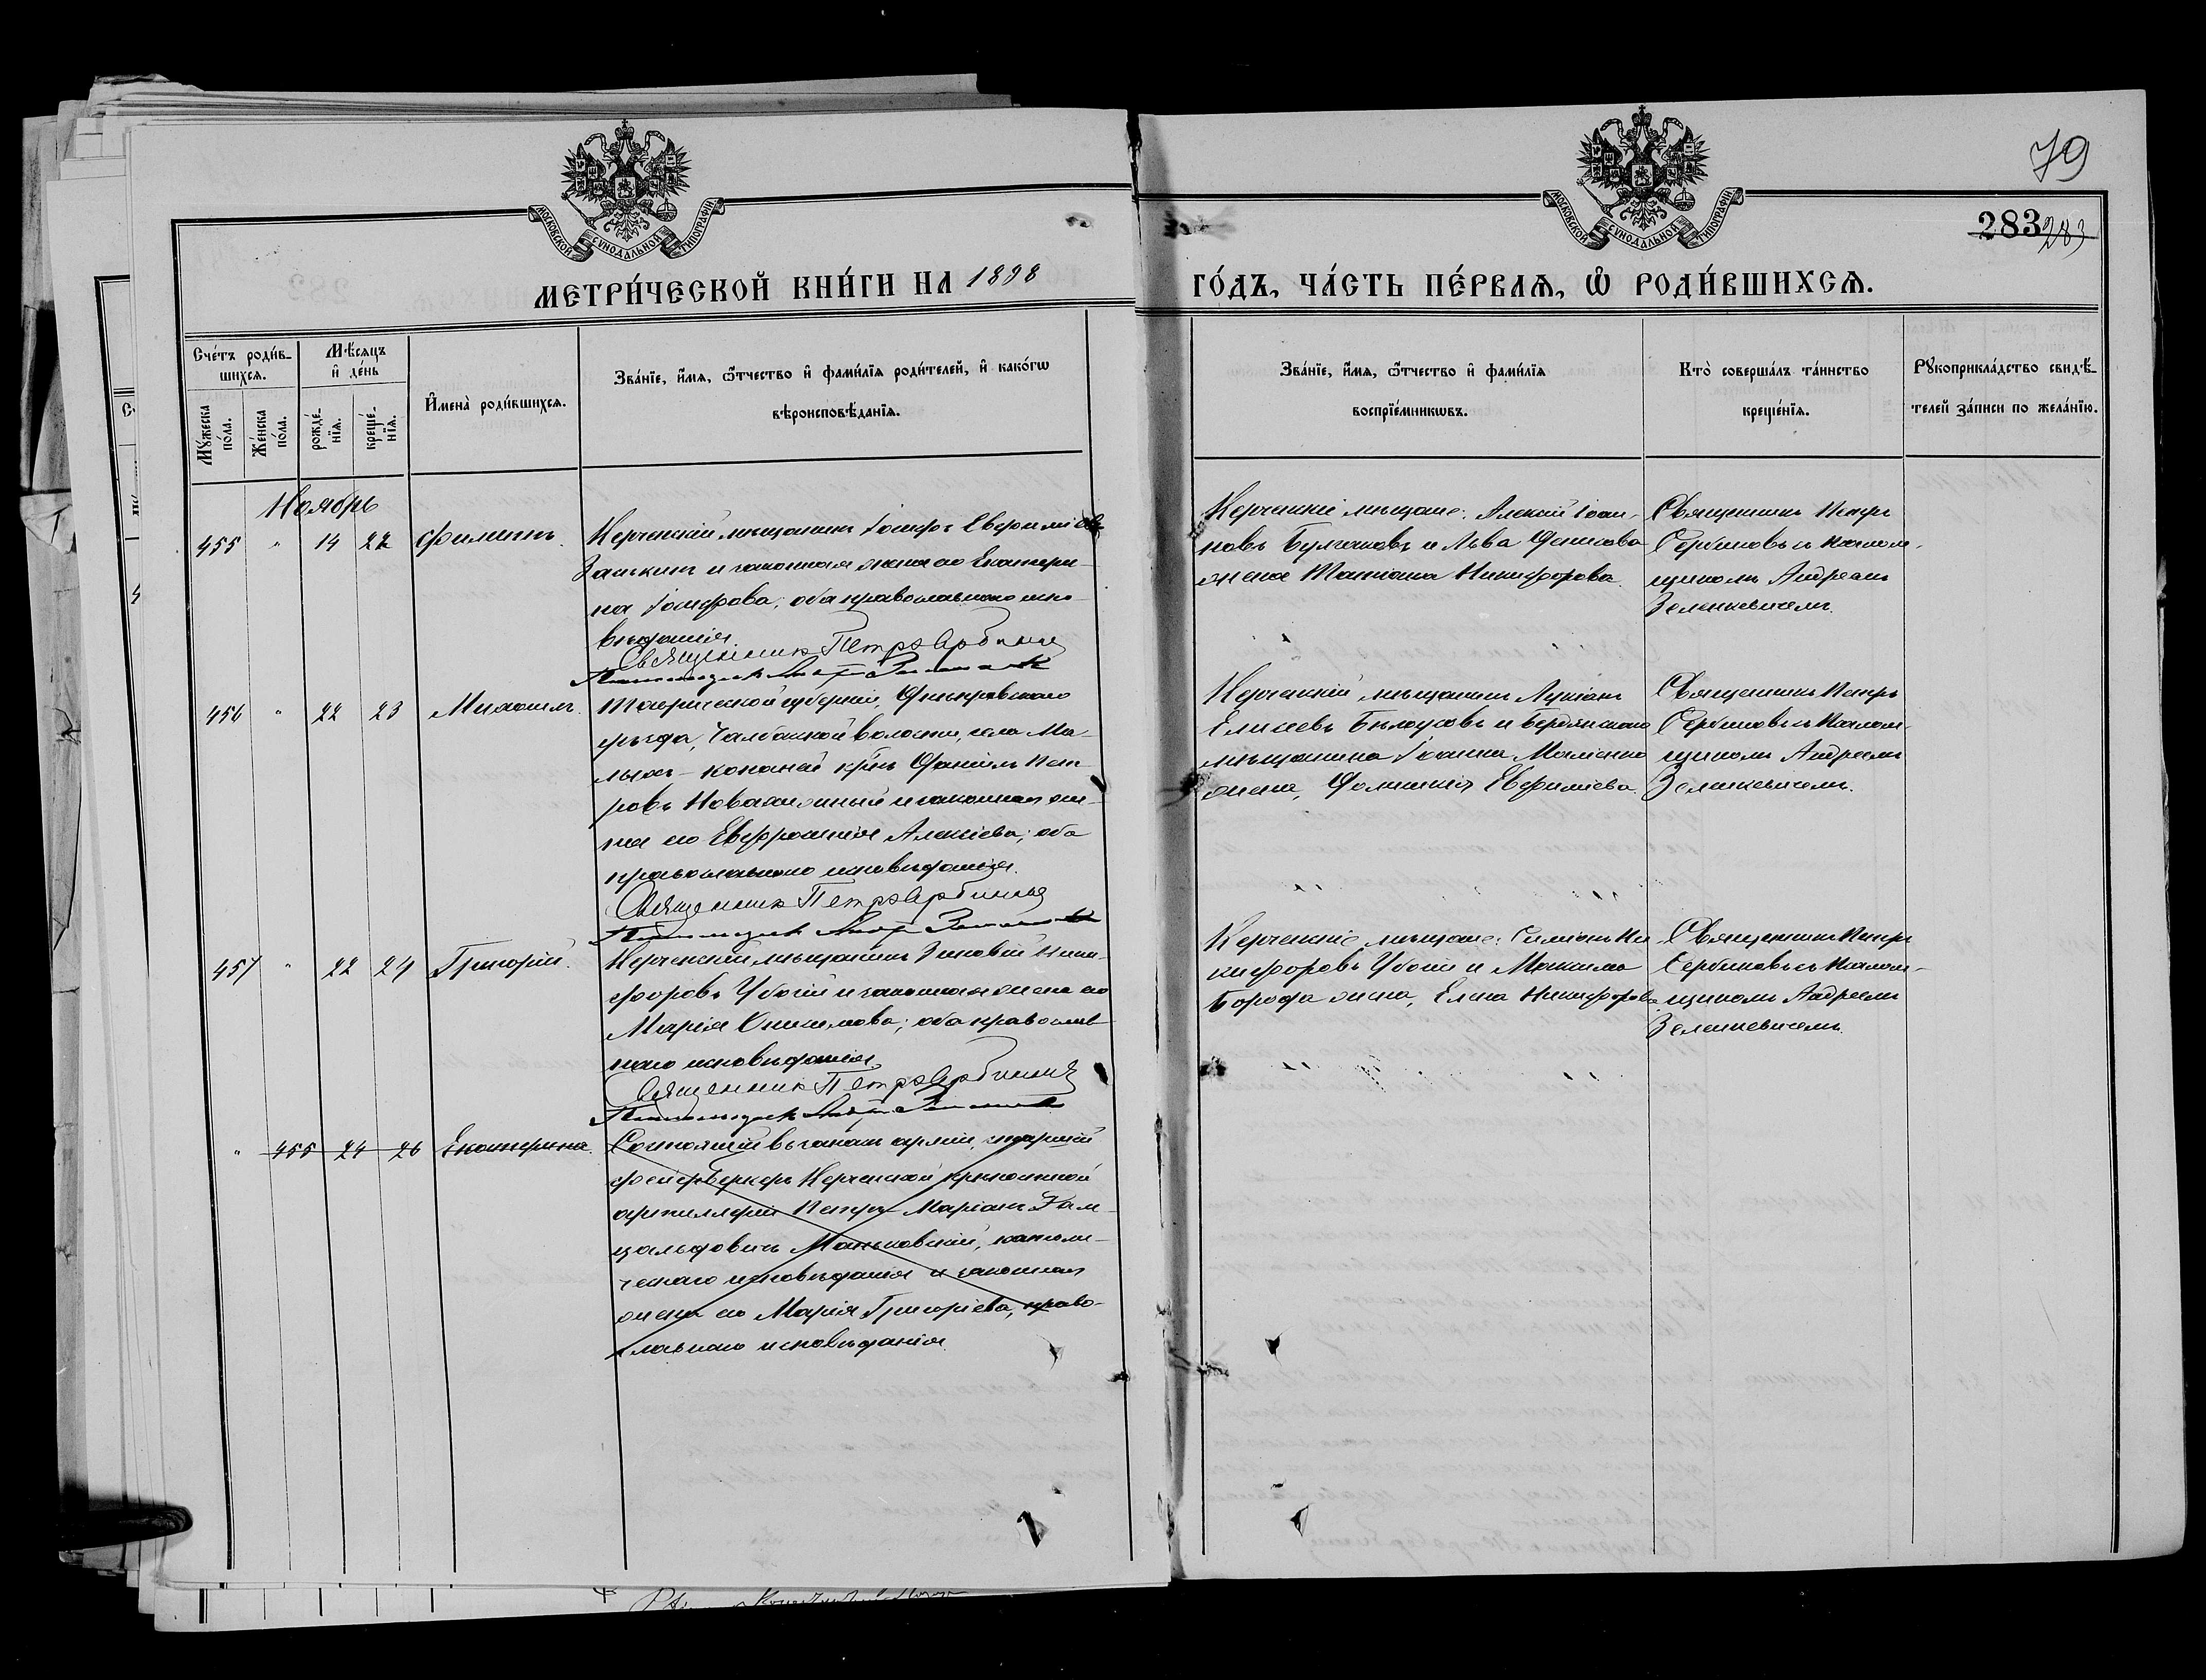 79
283
283
МОСКОВСКОЙ СѴНОДАЛЬНОЙ ТИПОГРАФІИ
МОСКОВСКОЙ СѴНОДАЛЬНОЙ ТИПОГРАФІИ
МЕТРИ́ЧЕСКОЙ КНИ́ГИ НА 1898
ГО́ДЪ, ЧА́СТЬ ПЕ́РВАѦ, Ѽ РОДИ́ВШИХСѦ.
Сче́тъ роди́в-
шихсѧ.
Мѣ́сѧцъ
и҆ де́нь
Мꙋ́жеска
по́ла.
Же́нска
по́ла.
рожде́-
нїѧ.
креще́-
нїѧ.
И҆мена̀ роди́вшихсѧ.
Зва́нїе, и҆́мѧ, ѻ҆́тчество и҆ фами́лїѧ роди́телей, и҆ како́гѡ
вѣроисповѣ́данїѧ.
Зва́нїе, и҆́мѧ, ѻ҆́тчество и҆ фами́лїѧ
воспрїе́мникѡвъ.
Кто̀ соверша́лъ та́инство
креще́нїѧ.
Рꙋкоприкла́дство свидѣ́-
телей за́писи по жела́нїю.
Ноябрь
455 " 14 22 Филиппъ.
Керченскій мѣщанинъ Іосифъ Евфиміевъ
Занькинъ и законная жена его Екатери-
на Іосифова; оба православнаго испо-
вѣданія.
Священникъ Петръ Сербиновъ
Керченскіе мѣщане: Алексій Іоан-
новъ Булгаковъ и Льва Фенкова
жена Татіана Никифорова.
Священникъ Петръ
Сербиновъ съ псалом-
щикомъ Андреемъ
Зеленкевичемъ.
456 " 22 23 Михаилъ.
Таврической губерніи, Днѣпровскаго
уѣзда, Чалбаской волости, села Ма-
лыхъ-Копаней кр-нъ Даніилъ Пет-
ровъ Новажилный и законная же-
на его Евфросинія Алексіева; оба
православнаго исповѣданія.
Священникъ Петръ Сербиновъ
Керченскій мѣщанинъ Лукіанъ
Елисеевъ Бѣлоусовъ и Бердянскаго
мѣщанина Іоанна Моменко
жена, Домникія Евфиміева.
Священникъ Петръ
Сербиновъ съ псалом-
щикомъ Андреемъ
Зеленкевичемъ.
457 " 22 24 Григорій.
Керченскій мѣщанинъ Зиновій Ники-
форовъ Убогій и законная жена его
Марія Онисимова; оба православ-
наго исповѣданія.
Священникъ Петръ Сербиновъ
Керченскіе мѣщане: Симеонъ Ни-
кифоровъ Убогій и Максима
Борода жена, Елена Никифорова.
Священникъ Петръ
Сербиновъ съ псалом-
щикомъ Андреемъ
Зеленкевичемъ.
" 455 24 26 Екатерина.
Состоящій въ запасѣ арміи, старшій
фейерверкеръ Керченской крѣпостной
артиллеріи Петръ-Маріанъ
Маньковскій, католи-
ческаго исповѣданія и законная
жена его Марія Григоріева, право-
славнаго исповѣданія.